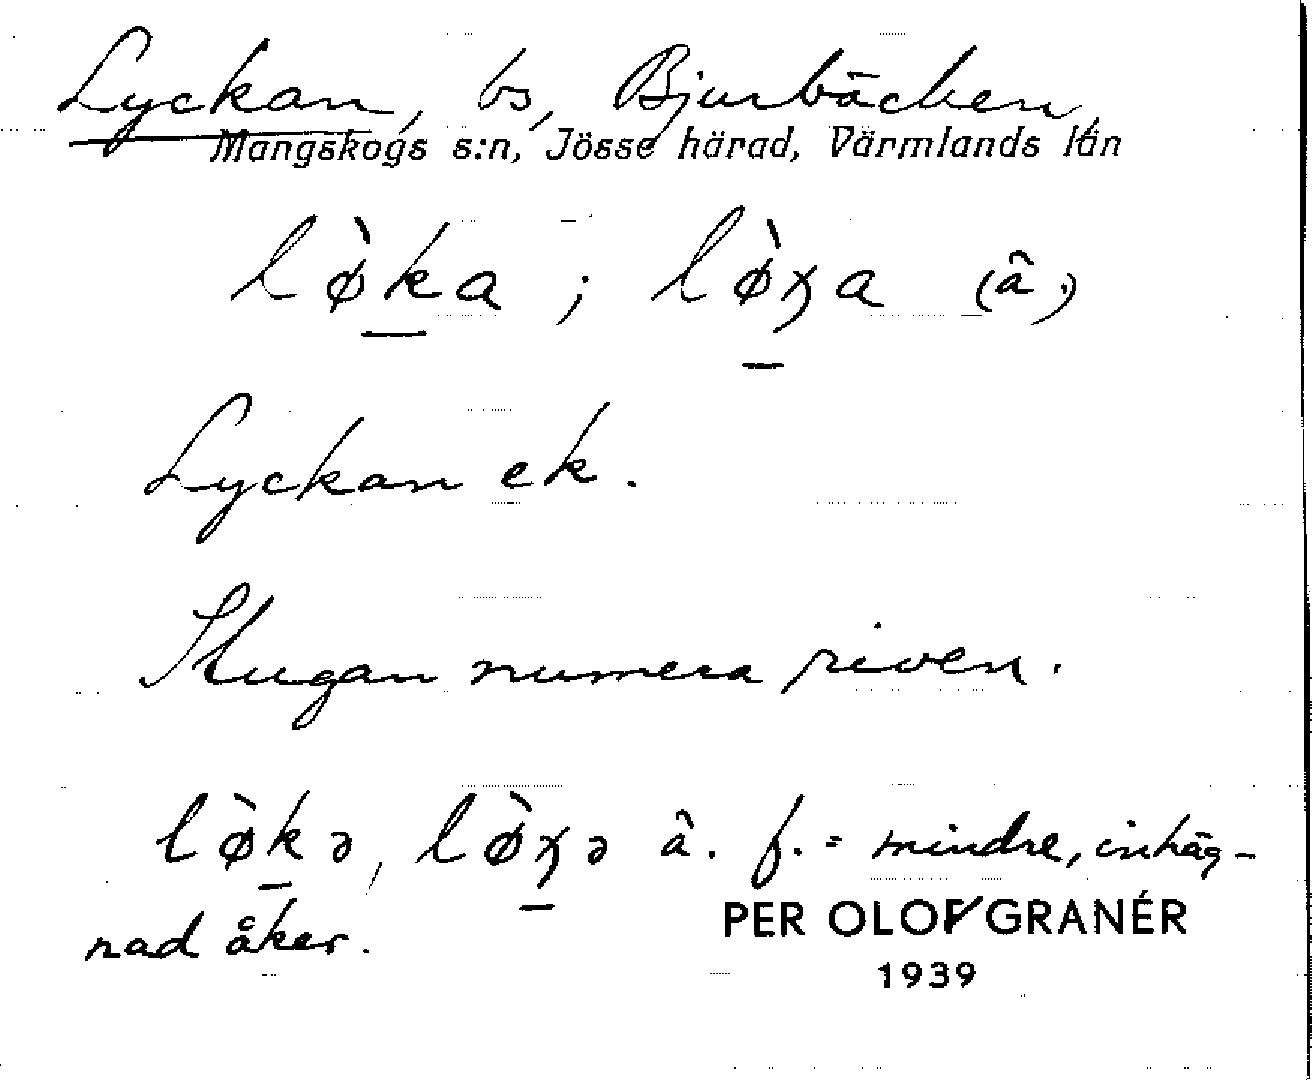 Lyckan, bs, Bjurbäcken,
Mangskogs s:n, Jösse härad, Värmlands län
lø̀ka ; lø̀ɟa (â.)
Lyckan ek.
Stugan numera riven.
lø̀kə, lø̀ɟə â. f. = mindre, inhäg-
nad åker.
PER OLOF GRANÉR
1939